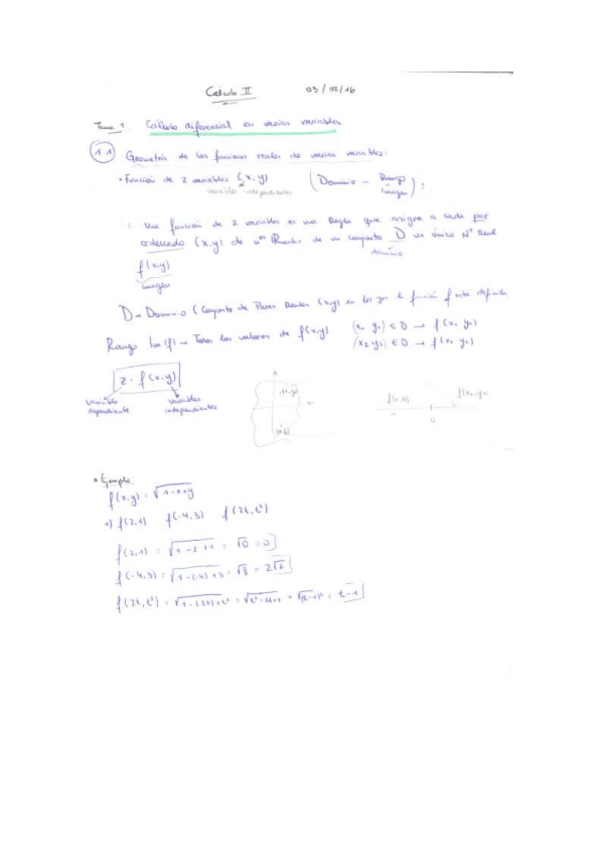 Cálculo II 03/02/16
Tema 1 Cálculo diferencial en varias variables
1.1 Geometría de las funciones reales de varias variables:
• Función de 2 variables (x,y) (Dominio - Rango imagen):
variables independientes
Una función de 2 variables es una Regla que asigna a cada par
ordenado (x,y) de nos Reales de un conjunto D un único Nº Real
dominio
f(x,y)
imagen
D = Dominio (Conjunto de Pares Reales (x,y) en los que la función f está definida
Rango Im(f) = Todos los valores de f(x,y) (x₁ y₁) ∈ D → f(x₁ y₁)
(x₂ y₂) ∈ D → f(x₂ y₂)
z = f(x,y)
variable dependiente
variables independientes
(a,b) f(a,b) 0
• Ejemplo
f(x,y) = √1-x+y
1) f(2,1) f(-4,3) f(2t,t²)
f(2,1) = √1-2+1 = √0 = 0
f(-4,3) = √1-(-4)+3 = √8 = 2√2
f(2t,t²) = √1-(2t)+t² = √t²-2t+1 = √(t-1)² = t-1